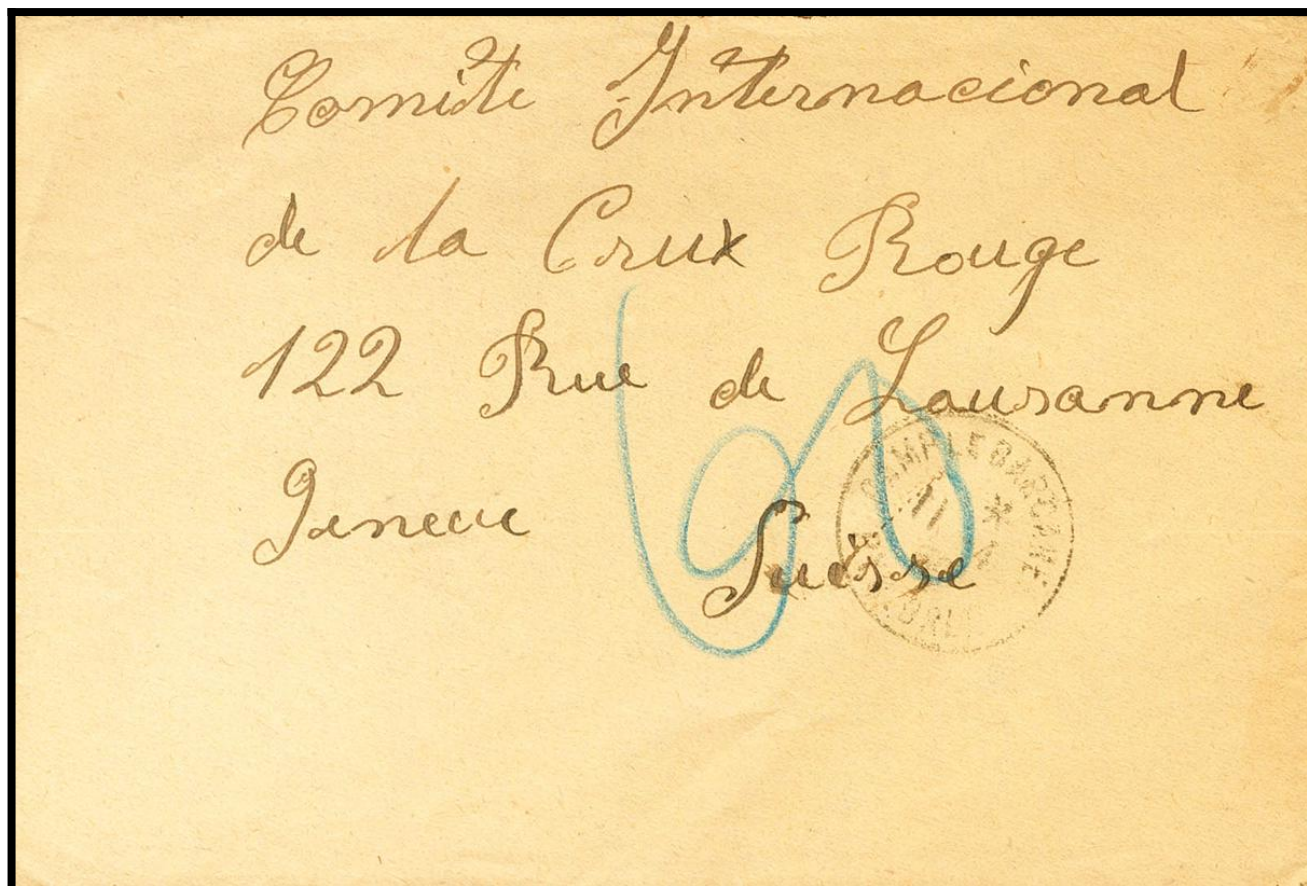 Comite Internacional
de la Crux Rouge
122 Rue de Lausanne
Geneve
Suisse
60